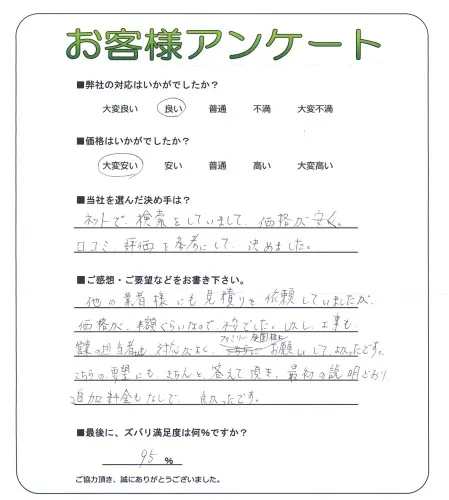 お客様アンケート
■弊社の対応はいかがでしたか？
大変良い　良い　普通　不満　大変不満
■価格はいかがでしたか？
大変安い　安い　普通　高い　大変高い
■当社を選んだ決め手は？
ネットで、検索をしていまして、価格が安く。
口コミ、評価を参考にして、決めました。
■ご感想・ご要望などをお書き下さい。
他の業者様にも見積りを依頼していましたが、
価格が、半額ぐらいなので、不安でした。しかし、工事も
営業の担当者も、対応がよく、ファミリー庭園様に お願いして、よかったです。
こちらの要望にも、きちんと答えて頂き、最初の説明どおり
追加料金もなしで、良かったです。
■最後に、ズバリ満足度は何％ですか？
95 ％
ご協力頂き、誠にありがとうございました。